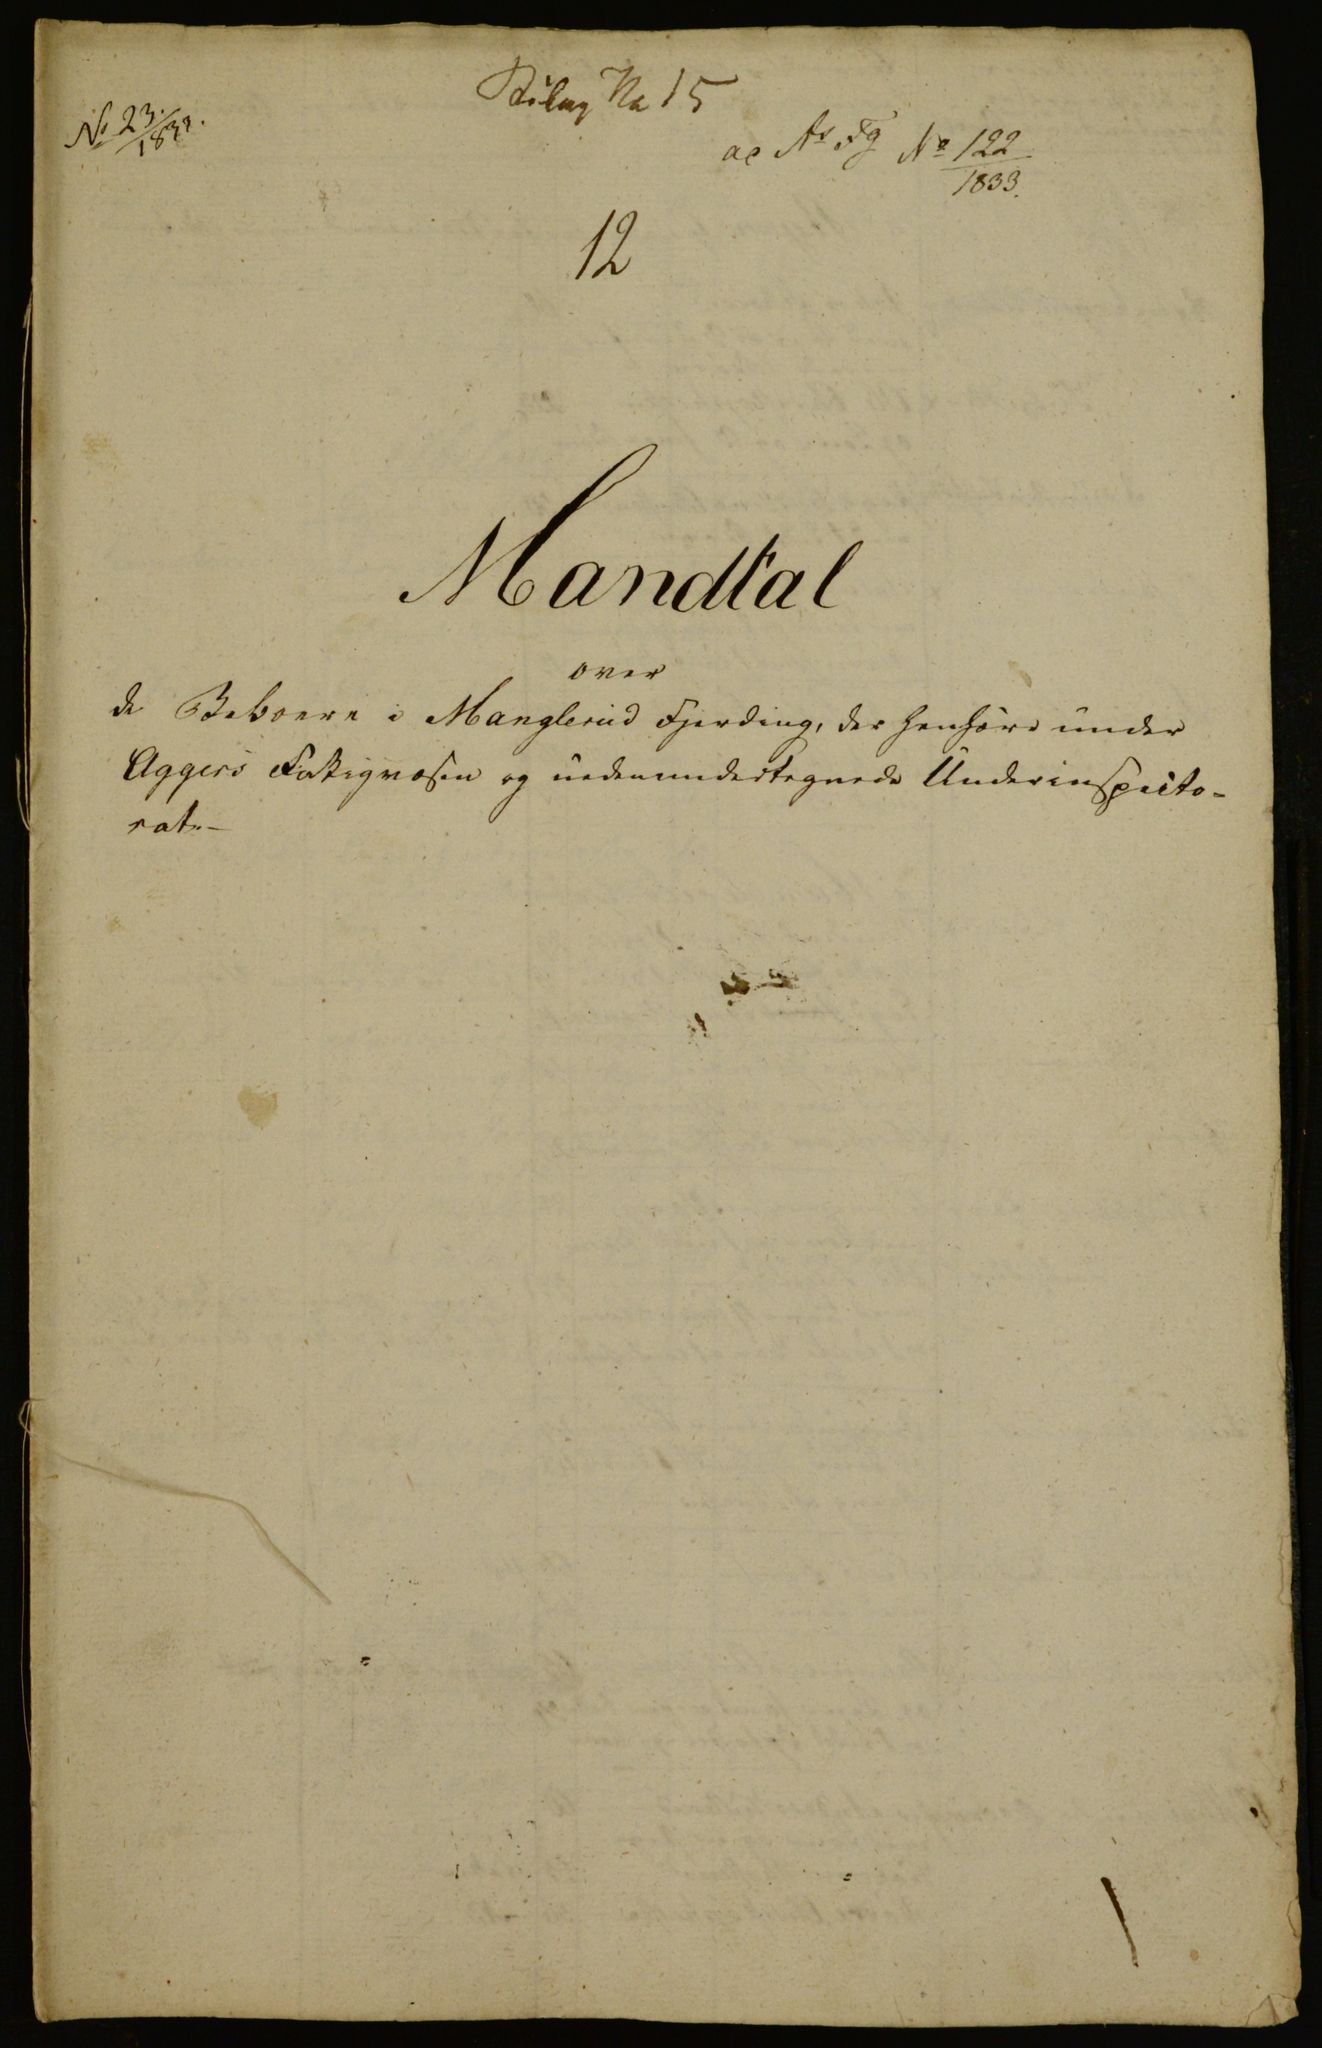 Bilag No 15
No 23./1833.
ac As Fg No 122/1833.
12
Mandtal
over
de Beboere i Manglerud Fjerding, der henhøre under
Aggers Fattigvæsen og nedenundertegnede Underinspecto-
rat.-